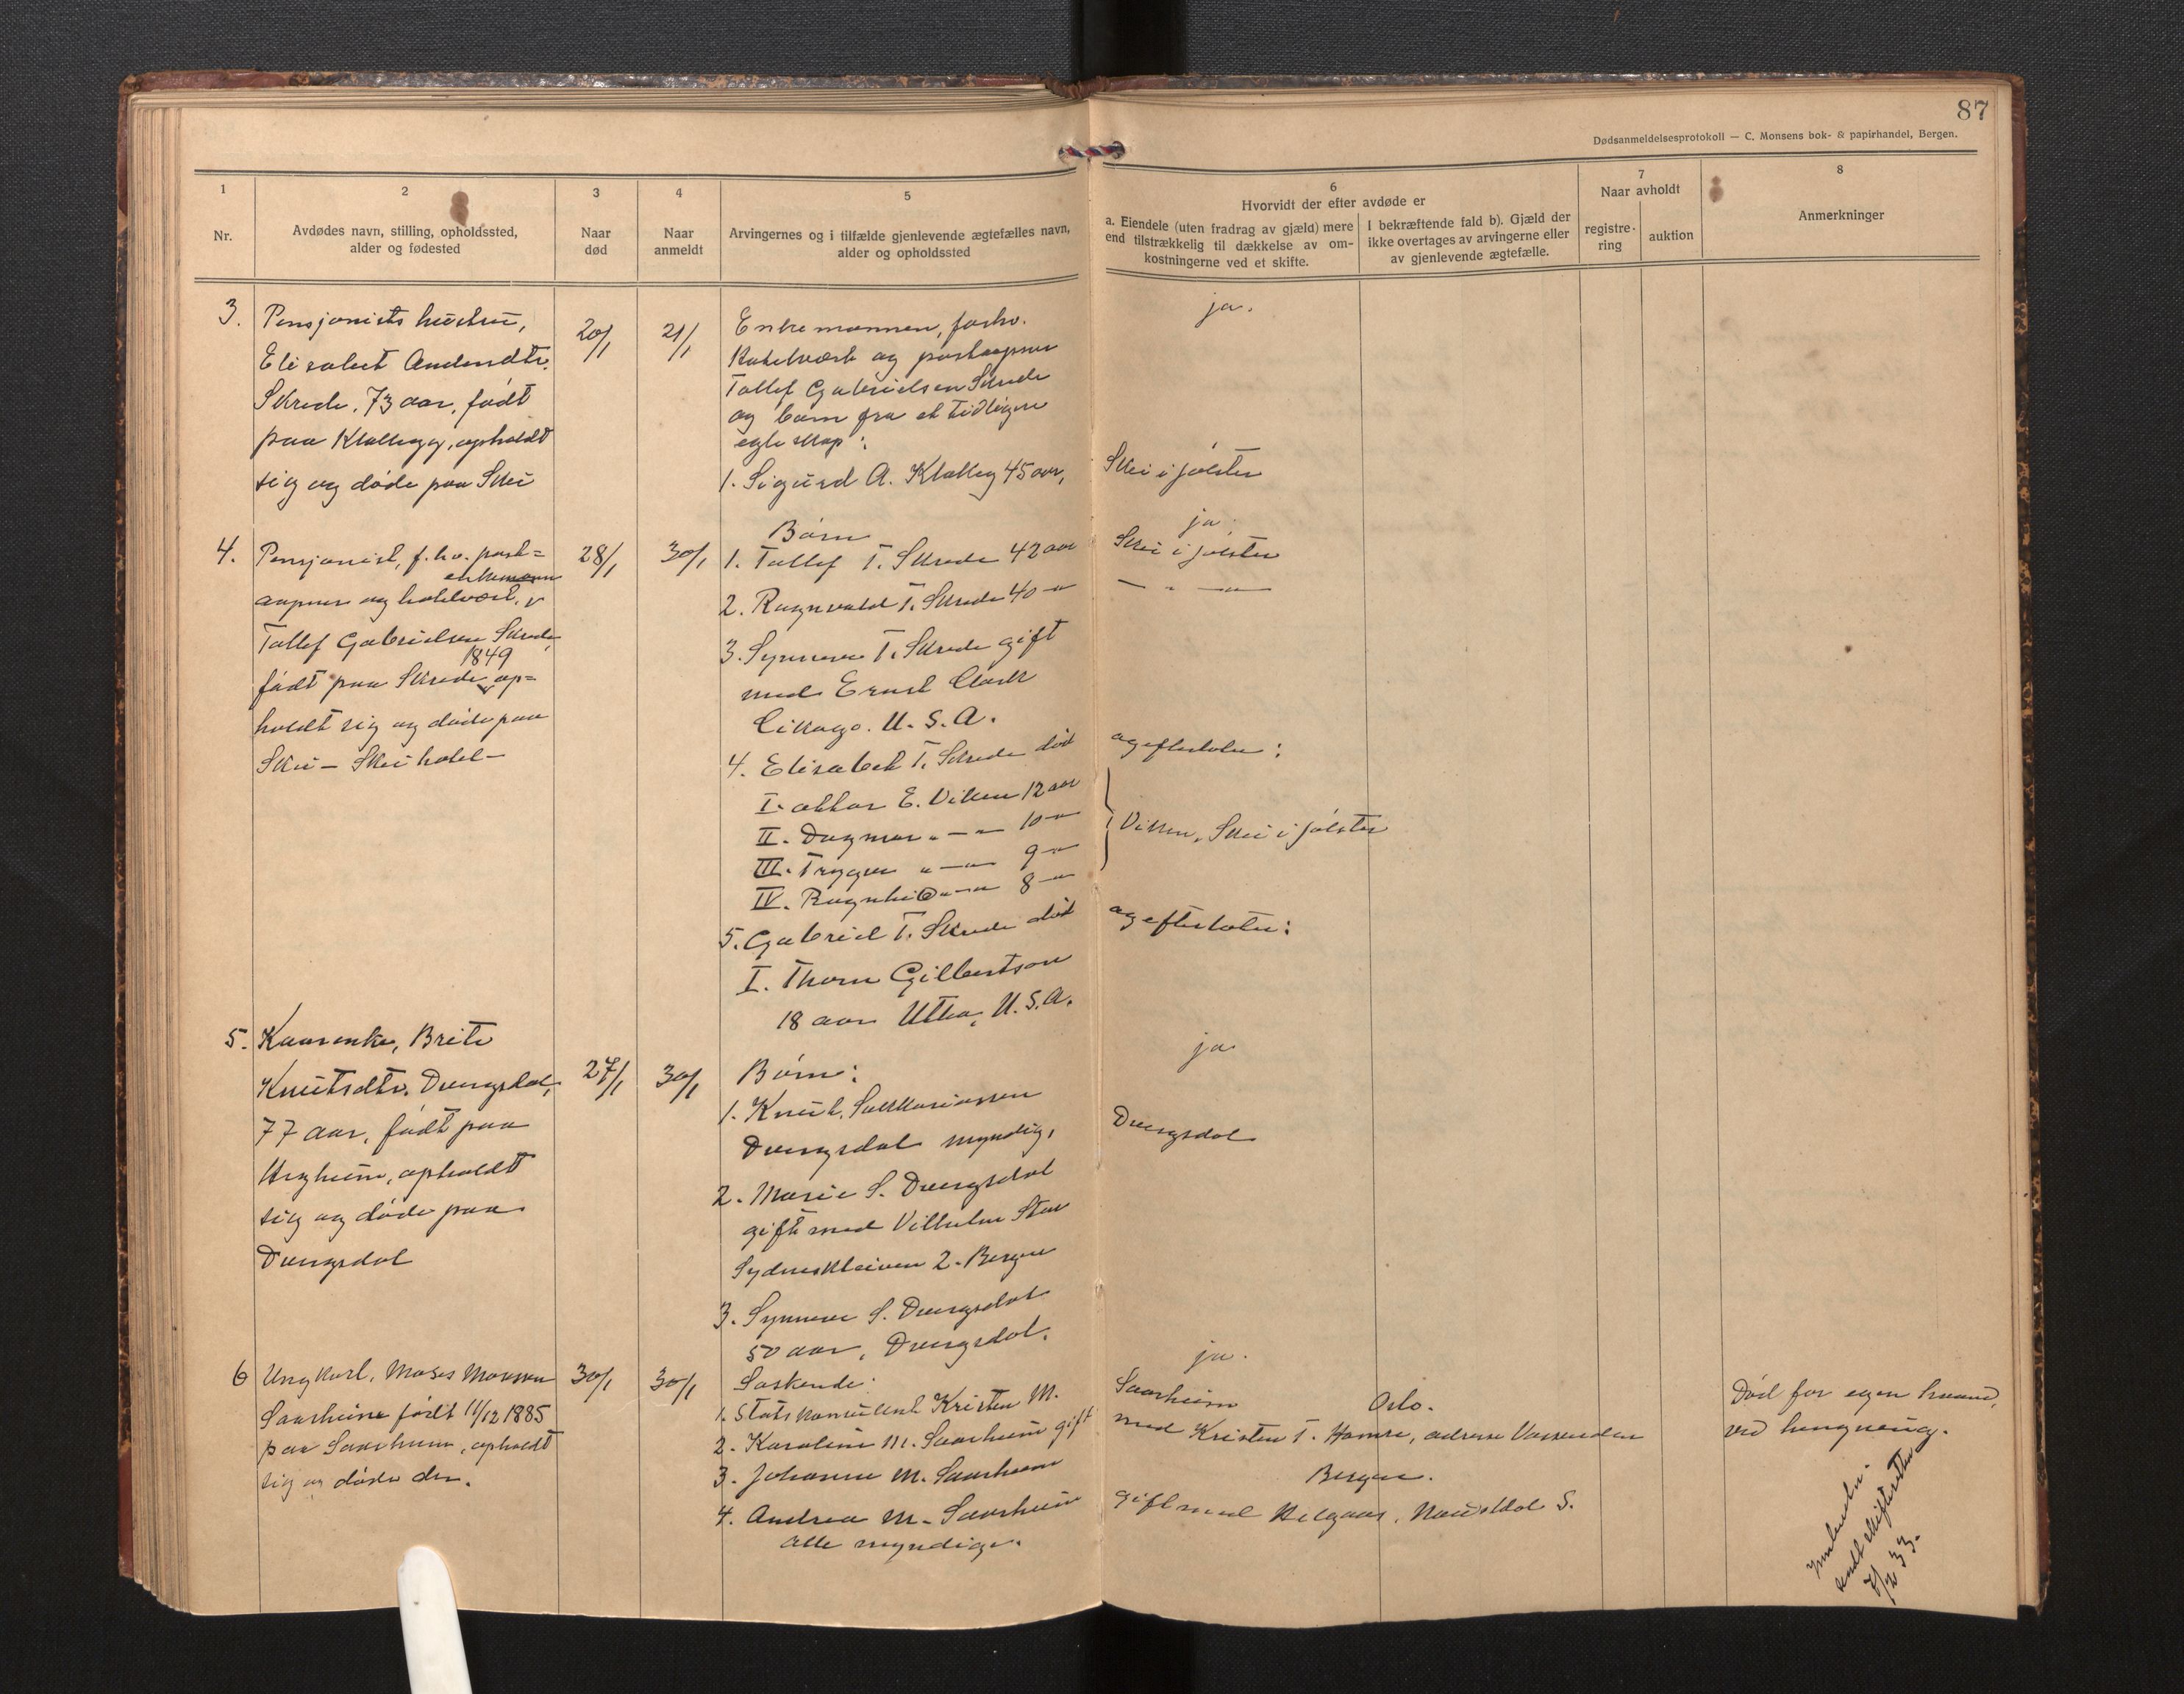 87
Dødsanmeldelsesprotokoll — C. Monsens bok- & papirhandel, Bergen.
1
Nr.
2
Avdødes navn, stilling, opholdssted,
alder og fødested
3
Naar
død
4
Naar
anmeldt
5
Arvingernes og i tilfælde gjenlevende ægtefælles navn,
alder og opholdssted
6
Hvorvidt der efter avdøde er
a. Eiendele (uten fradrag av gjæld) mere
end tilstrækkelig til dækkelse av om-
kostningerne ved et skifte.
I bekræftende fald b). Gjæld der
ikke overtages av arvingerne eller
av gjenlevende ægtefælle.
7
Naar avholdt
registre-
ring
auktion
8
Anmerkninger
3.
Pensjonists hustru,
Elisabet Andersdtr.
Skrede, 73 aar, født
paa Klakegg, opholdt
sig og døde paa Skei
20/1
21/1
Enkemannen, forhv.
hotelvert og postaapner
Tollef Gabrielsen Skrede
og barn fra et tidligere
egteskap:
1. Sigurd A. Klakeg 45 aar,
ja.
Skei i Jølster
4.
Pensjonist, f.hv. post=
aapner og hotelvert, enkemann
Tollef Gabrielsen Skrede,
født paa Skrede 1849, op=
holdt sig og døde paa
Skei — Skei hotel —
28/1
30/1
Børn
1. Tollef T. Skrede 42 aar
2. Ragnvald T. Skrede 40 —"—
3. Synneve T. Skrede gift
med Ernst Clark
Cikago. U.S.A.
4. Elisabet T. Skrede død
I. Okkar E. Viken 12 aar
II. Dagmar " — " 10 —"
III. Trygve " — " 9 —"
IV. Ragnhild " — " 8 —"
5. Gabriel T. Skrede død
I. Thom Gilbertson
18 aar Utha, U.S.A.
ja
Skei i Jølster
— " — " —
og efterlater:
Viken, Skei i Jølster
og efterlater:
5.
Kaarenke, Brite
Knutsdtr. Dvergsdal,
77 aar, født paa
Hegheim, opholdt
sig og døde paa
Dvergsdal
27/1
30/1
Børn:
1. Knut Sakkariassen
Dvergsdal myndig,
2. Marie S. Dvergsdal
gift med Vilhelm
Sydneskleiven 2. Bergen
3. Synneve S. Dvergsdal
50 aar, Dvergsdal.
ja
Dvergsdal
6
Ungkarl, Moses Monsen
Saarheim født 11/12 1885
paa Saarheim, opholdt
sig og døde der.
30/1
30/1
Søskende:
1. Statskonsulent Kristen M.
2. Karoline M. Saarheim gift
3. Johanne M. Saarheim
4. Andrea M. Saarheim
alle myndige.
ja.
Saarheim Oslo.
med Kristen T. Hamre, adresse Vassenden
Bergen.
gift med Helgaas, Naustdal S.
Død for egen haand,
ved hengning.
sendt skifteretten
7/2 33.